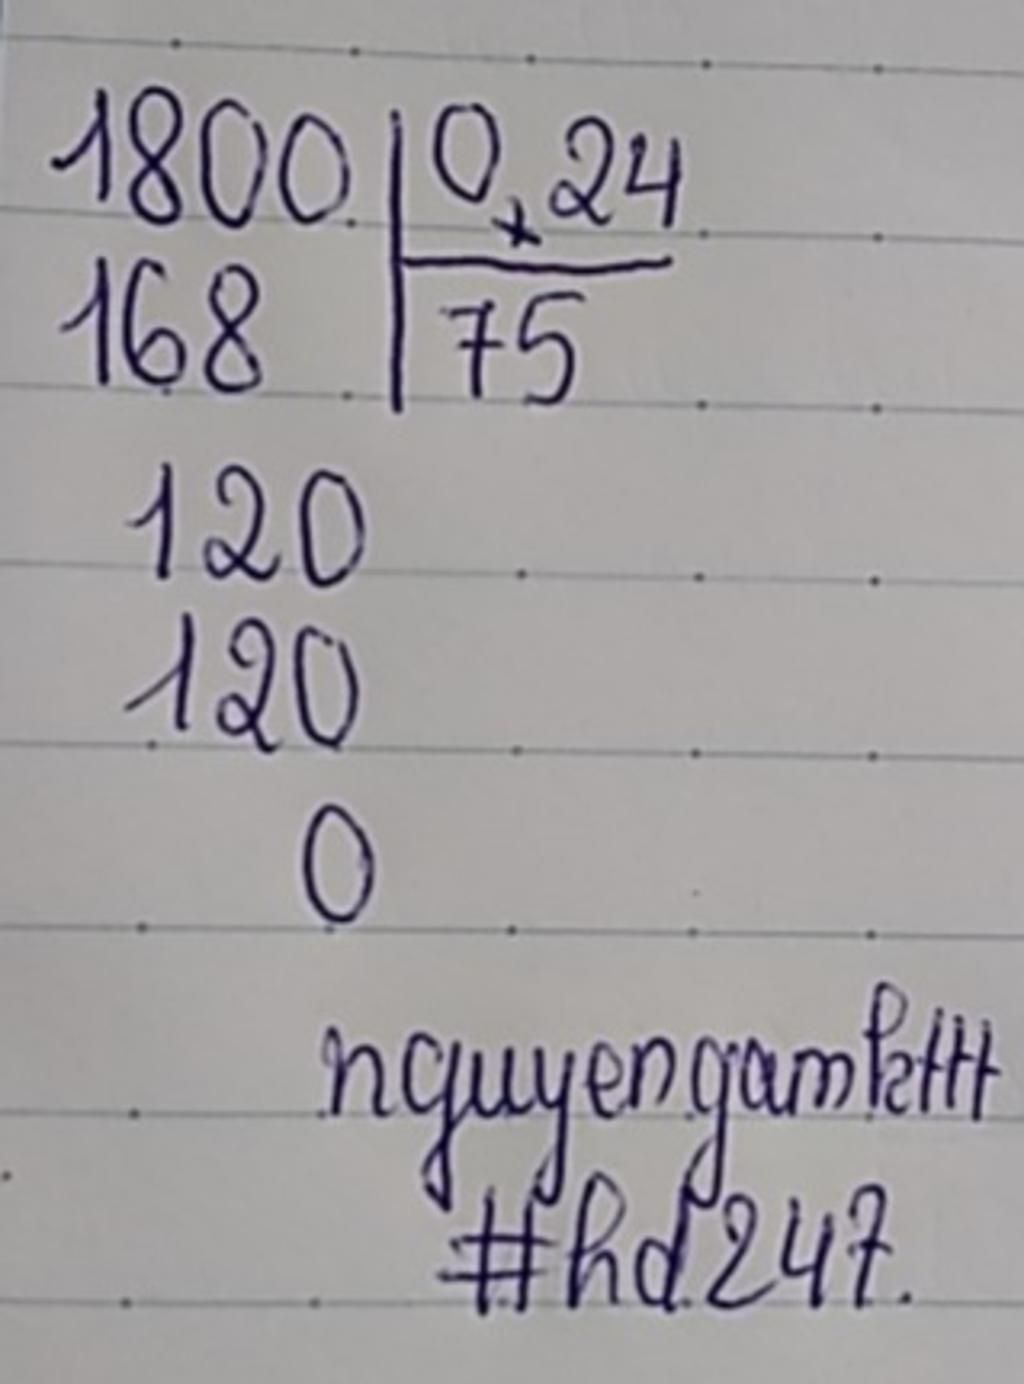 1800 0,24
168 75
120
120
0
nguyengamkttt
#hd247.